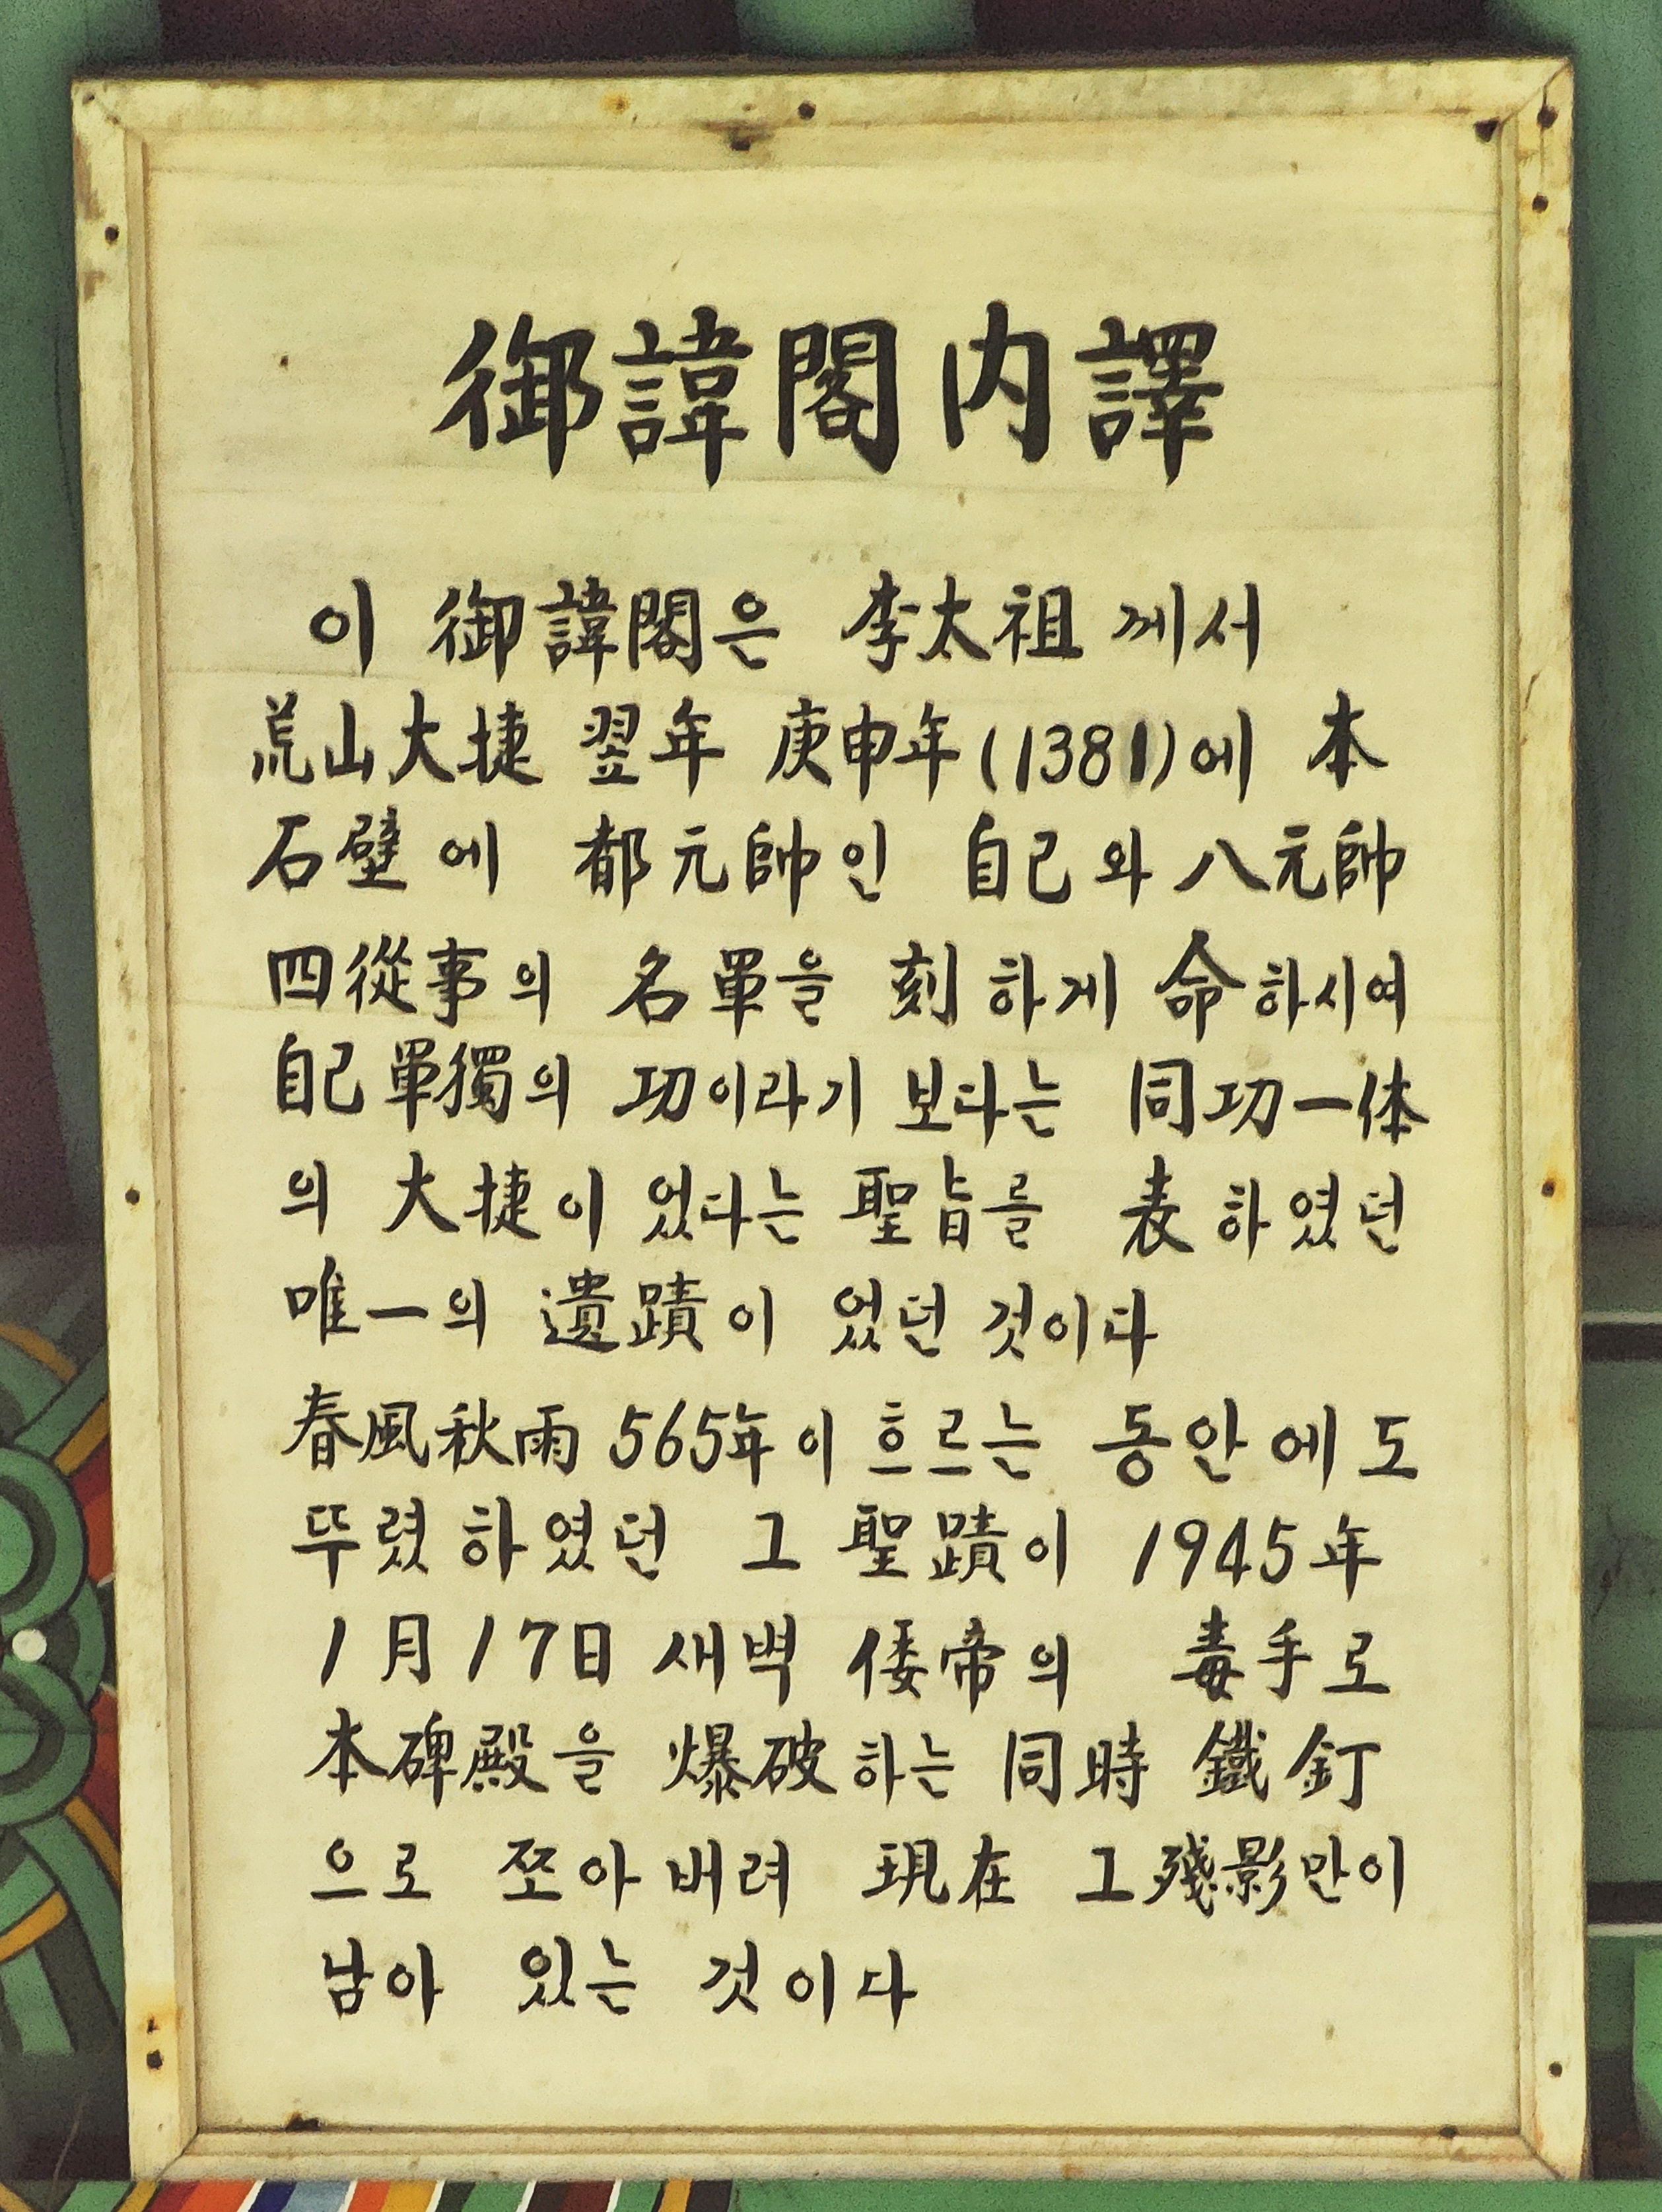 御諱閣内譯
이 御諱閣은 李太祖께서
荒山大捷 翌年 庚申年(1381)에 本
石壁에 都元帥인 自己와 八元帥
四從事의 名單을 刻하게 命하시여
自己單獨의 功이라기 보다는 同功一体
의 大捷이 었다는 聖旨를 表하였던
唯一의 遺蹟이 었던 것이다
春風秋雨 565年이 흐르는 동안에도
뚜렸하였던 그 聖蹟이 1945年
1月17日 새벽 倭帝의 毒手로
本碑殿을 爆破하는 同時 鐵釘
으로 쪼아버려 現在 그殘影만이
남아 있는 것이다